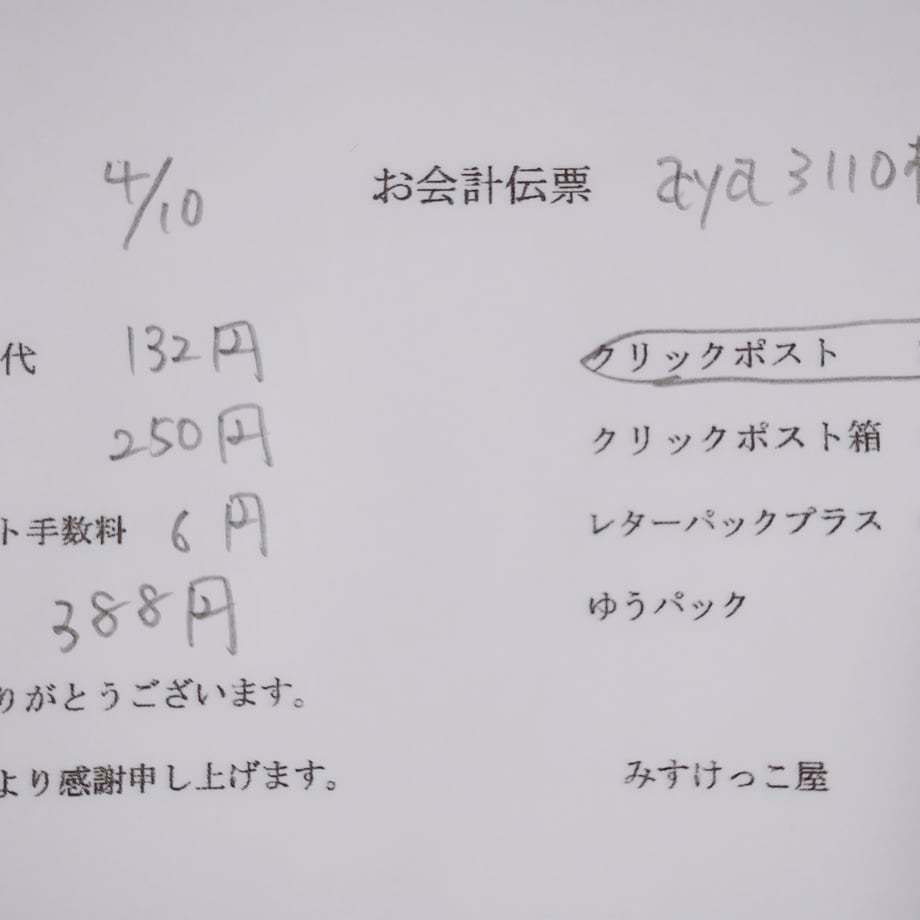 4/10 お会計伝票 aya3110様
代 132円 クリックポスト
250円 クリックポスト箱
ト手数料 6円 レターパックプラス
388円 ゆうパック
りがとうございます。
より感謝申し上げます。 みすけっこ屋